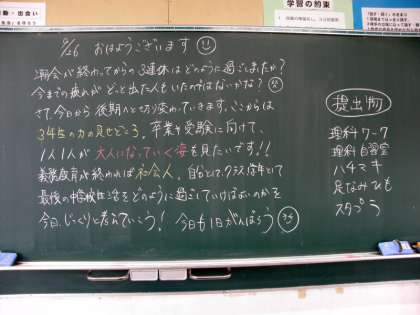 学習の約束
9/26 おはようございます
潮会が終わってからの3連休はどのように過ごしましたか?
今までの疲れがどっと出た人もいたのではないかな?
さて、今日から後期へと切り変わっていきます。ここからは
3年生の力の見せどころ。卒業や受験に向けて、
1人1人が大人になっていく姿を見たいです!!
義務教育が終われば社会人。自分として、クラス、学年として
最後の中学校生活をどのように過ごしていけばよいのかを
今日、じっくりと考えていこう! 今日も1日がんばろう
提出物
理科ワーク
理科自習室
ハチマキ
足なみひも
スタプラ